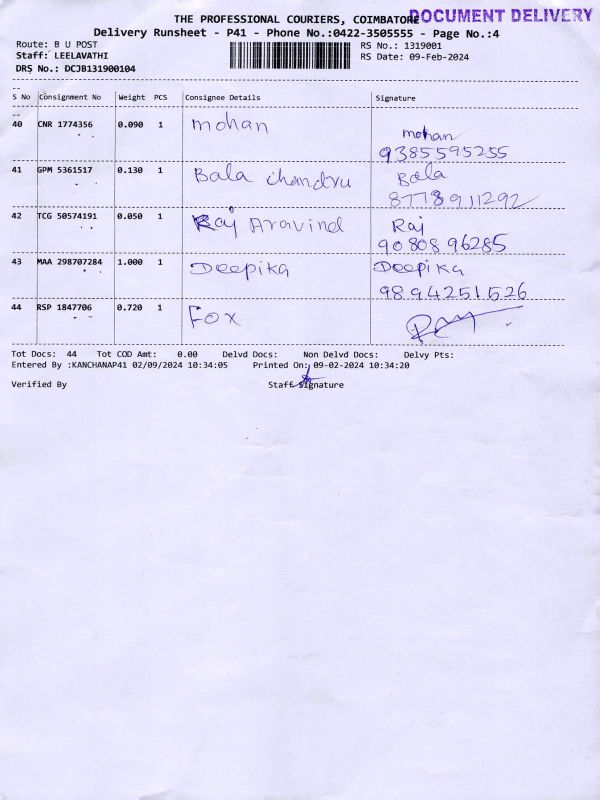 THE PROFESSIONAL COURIERS, COIMBATORE
DOCUMENT DELIVERY
Delivery Runsheet - P41 - Phone No.:0422-3505555 - Page No.:4
Route: B U POST
RS No.: 1319001
Staff: LEELAVATHI
RS Date: 09-Feb-2024
DRS No.: DCJB131900104
S No Consignment No Weight PCS Consignee Details Signature
40 CNR 1774356 0.090 1 mohan mohan
9385595255
41 GPM 5361517 0.130 1 Bala chandru Bala
8778911292
42 TCG 50574191 0.050 1 Raj Aravind Raj
9080896285
43 MAA 298707284 1.000 1 Deepika Deepika
9894251526
44 RSP 1847706 0.720 1 Fox
Tot Docs: 44 Tot COD Amt: 0.00 Delvd Docs: Non Delvd Docs: Delvy Pts:
Entered By :KANCHANAP41 02/09/2024 10:34:05 Printed On: 09-02-2024 10:34:20
Verified By Staff Signature